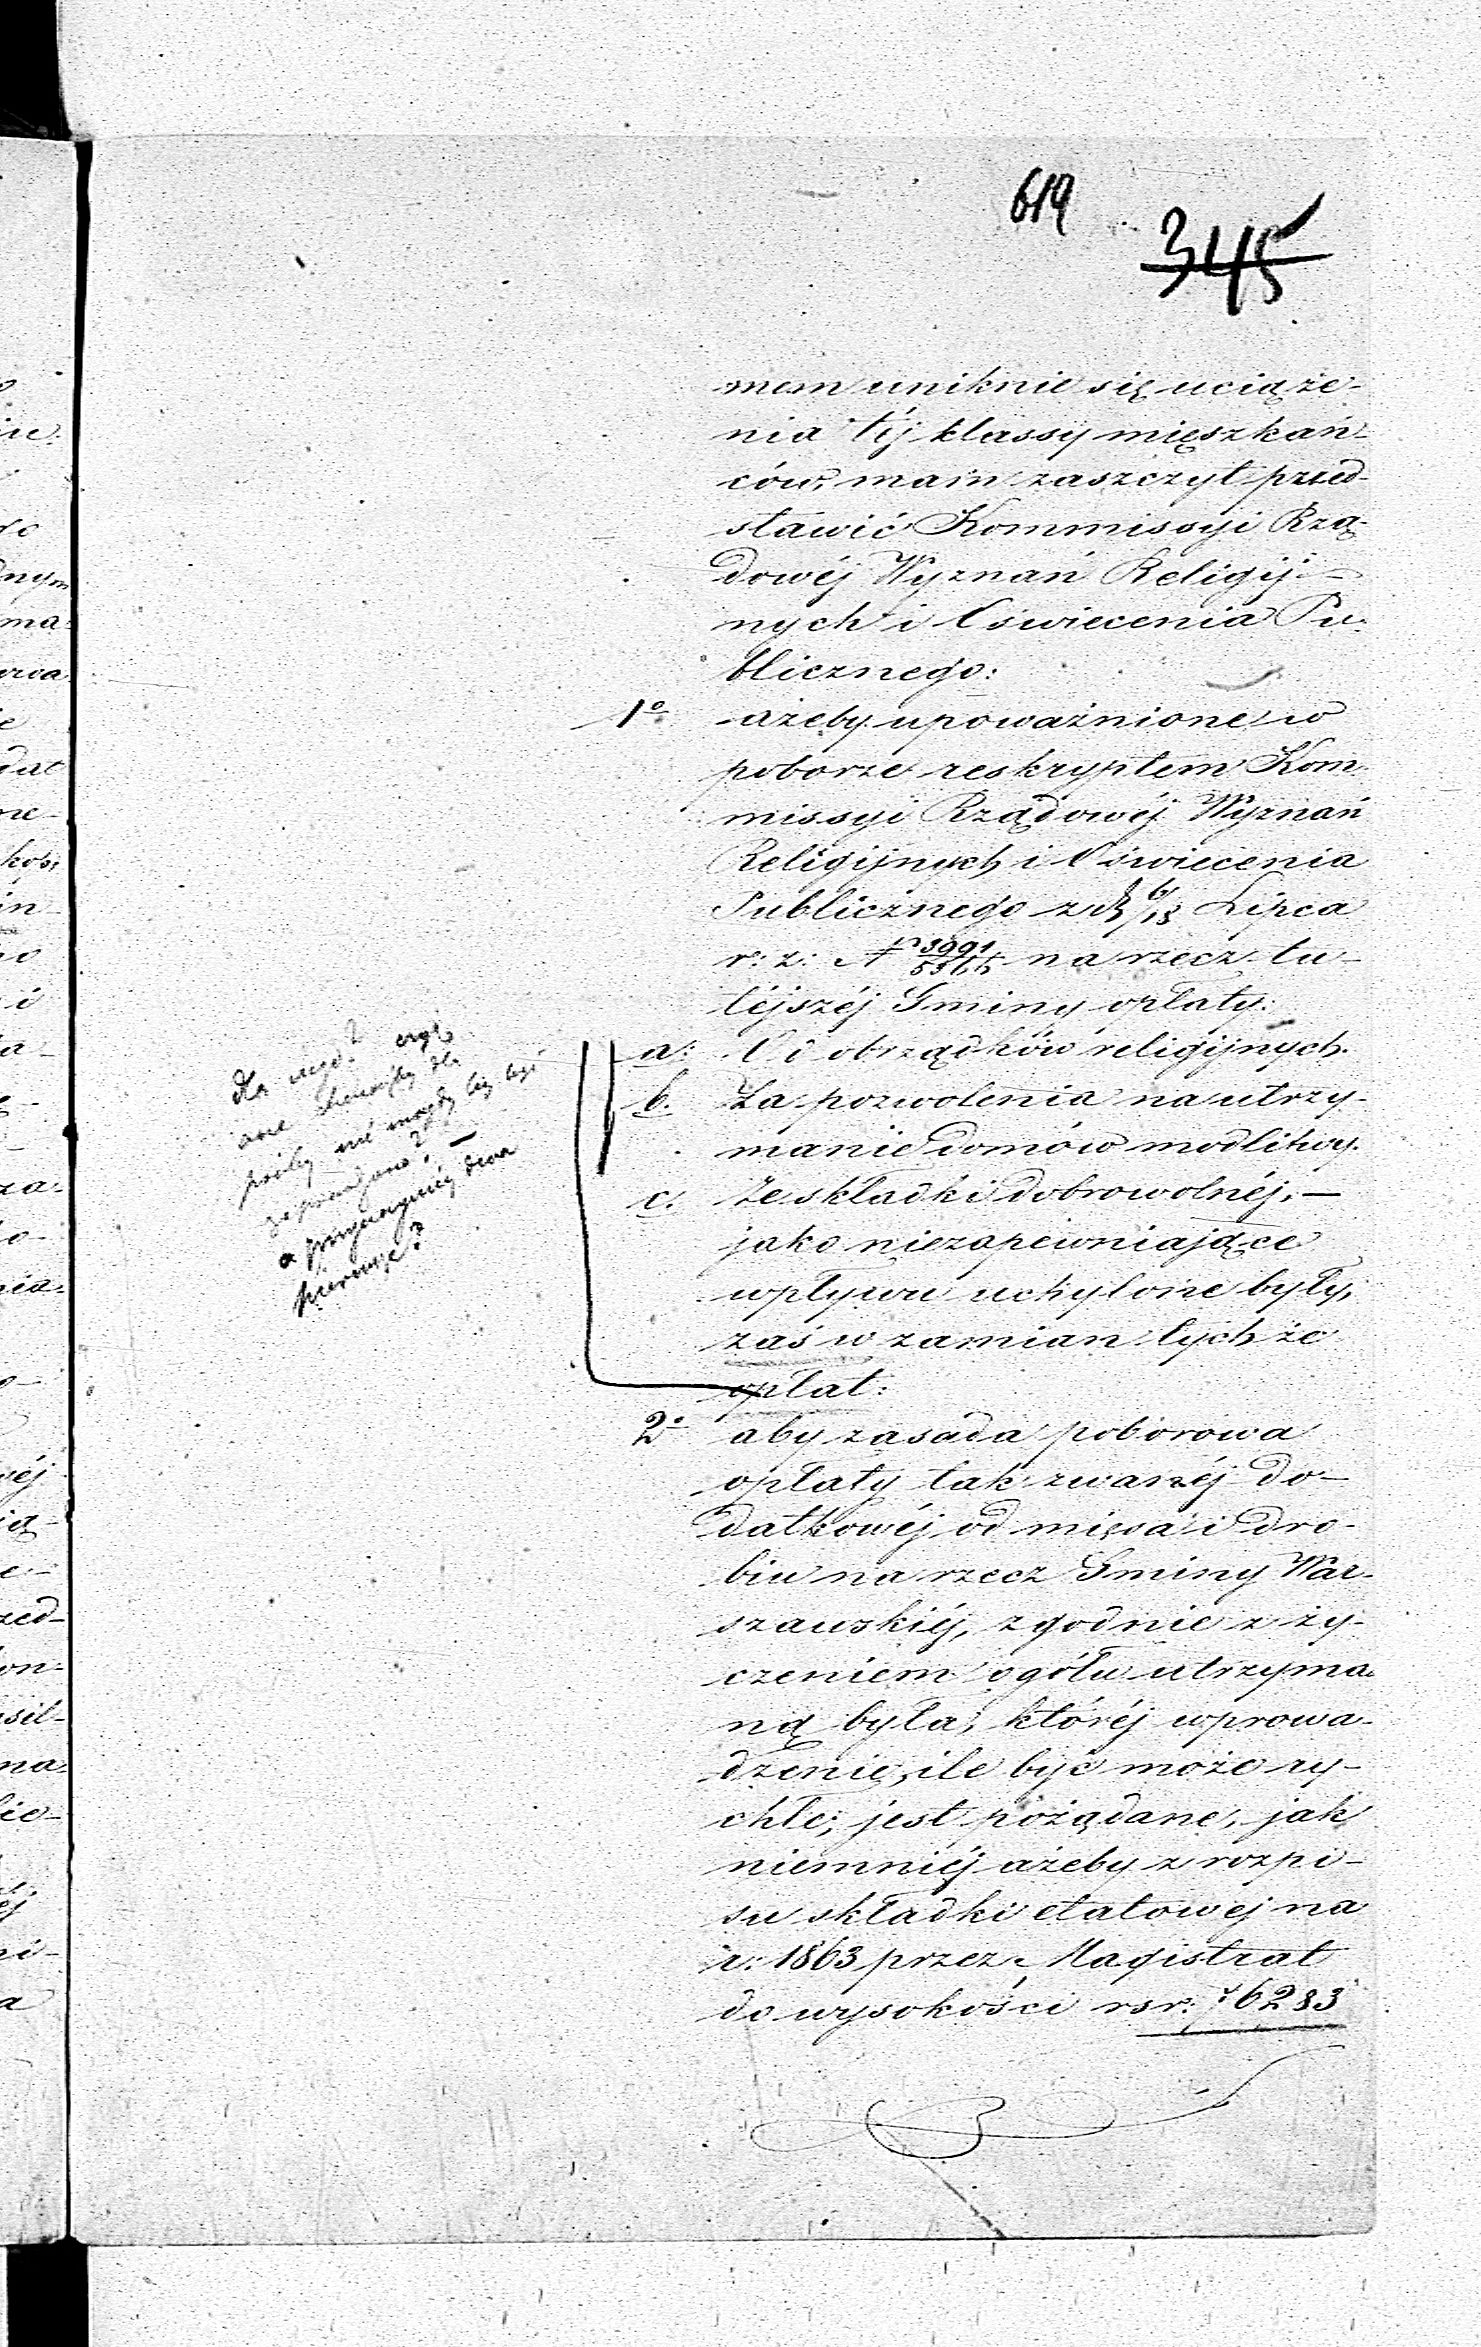 619
345
mem uniknie się uciąże-
nia téj klassy mięszkań-
ców, mam zaszczyt przed-
stawić Kommissyi Rzą-
dowéj Wyznań Religij-
nych i Oświecenia Pu-
blicznego:
1o ażeby upoważnione w
poborze reskryptem Kom
missyi Rządowéj Wyznań
Religijnych i Oświecenia
Publicznego z d. 6/18 Lipca
r: z: N na rzecz tu-
téjszéj Gminy opłaty:
a: Od obrządków religijnych.
b. Za pozwolenia na utrzy-
manie domów modlitwy.
c. Ze składki dobrowolnéj, —
jako niezapewniające
wpływu uchylone były,
zaś w zamian tychże
opłat:
2o aby zasada poborowa
opłaty tak zwanéj do-
datkowéj od mięsa i dro-
biu na rzecz Gminy War-
szawskiéj, zgodnie z ży-
czeniem ogółu utrzyma-
ną była, któréj wprowa-
dzenie, ile być może ry-
chłe, jest pożądane, jak
niemniéj ażeby z rozpi-
su składki etatowej na
r: 1863 przez Magistrat
do wysokości rsr. 76283
dla czego? czyż
one chociażby dla
próby nié mogły by być
a przynajmniéj dwa
pierwsze?